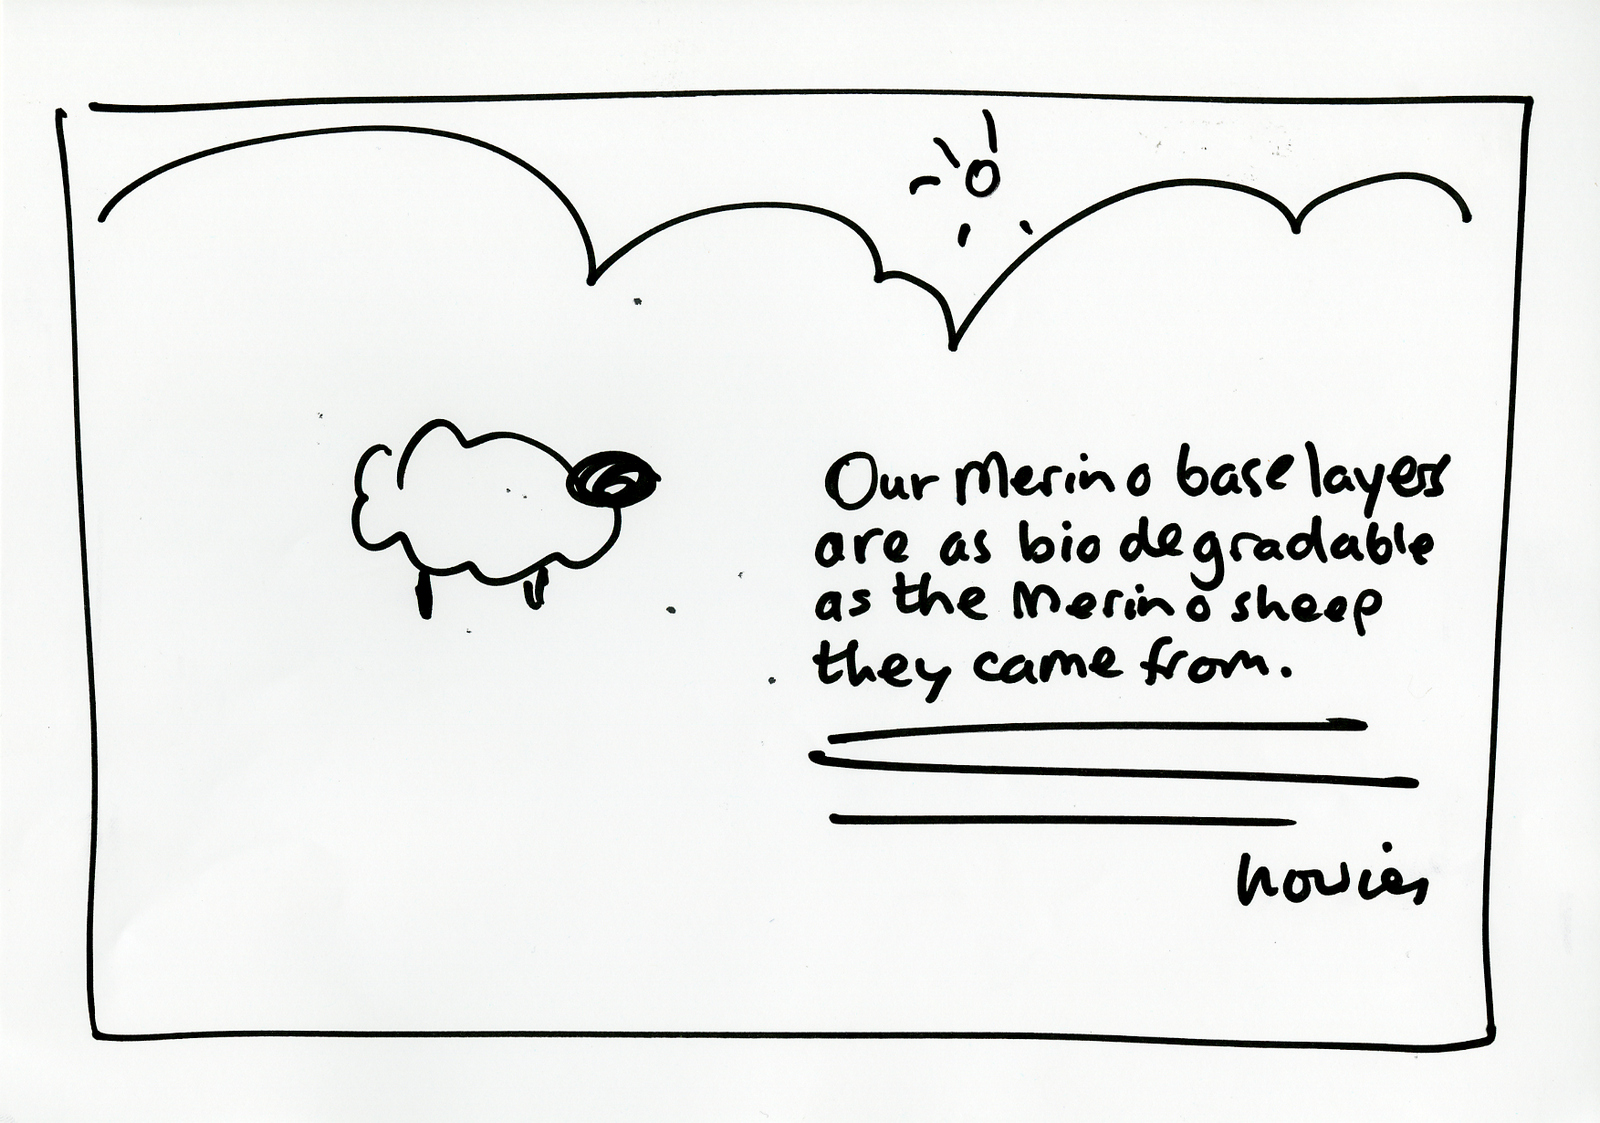 Our Merino base layers
are as biodegradable
as the Merino sheep
they came from.
howies